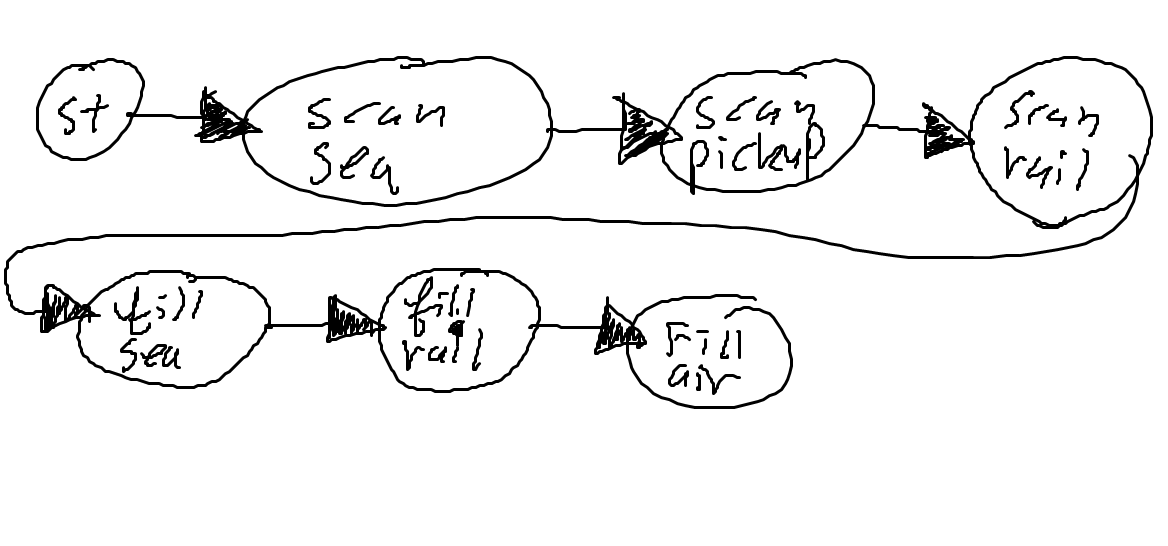 st
scan
sea
scan
pickup
scan
rail
fill
sea
fill
rail
Fill
air